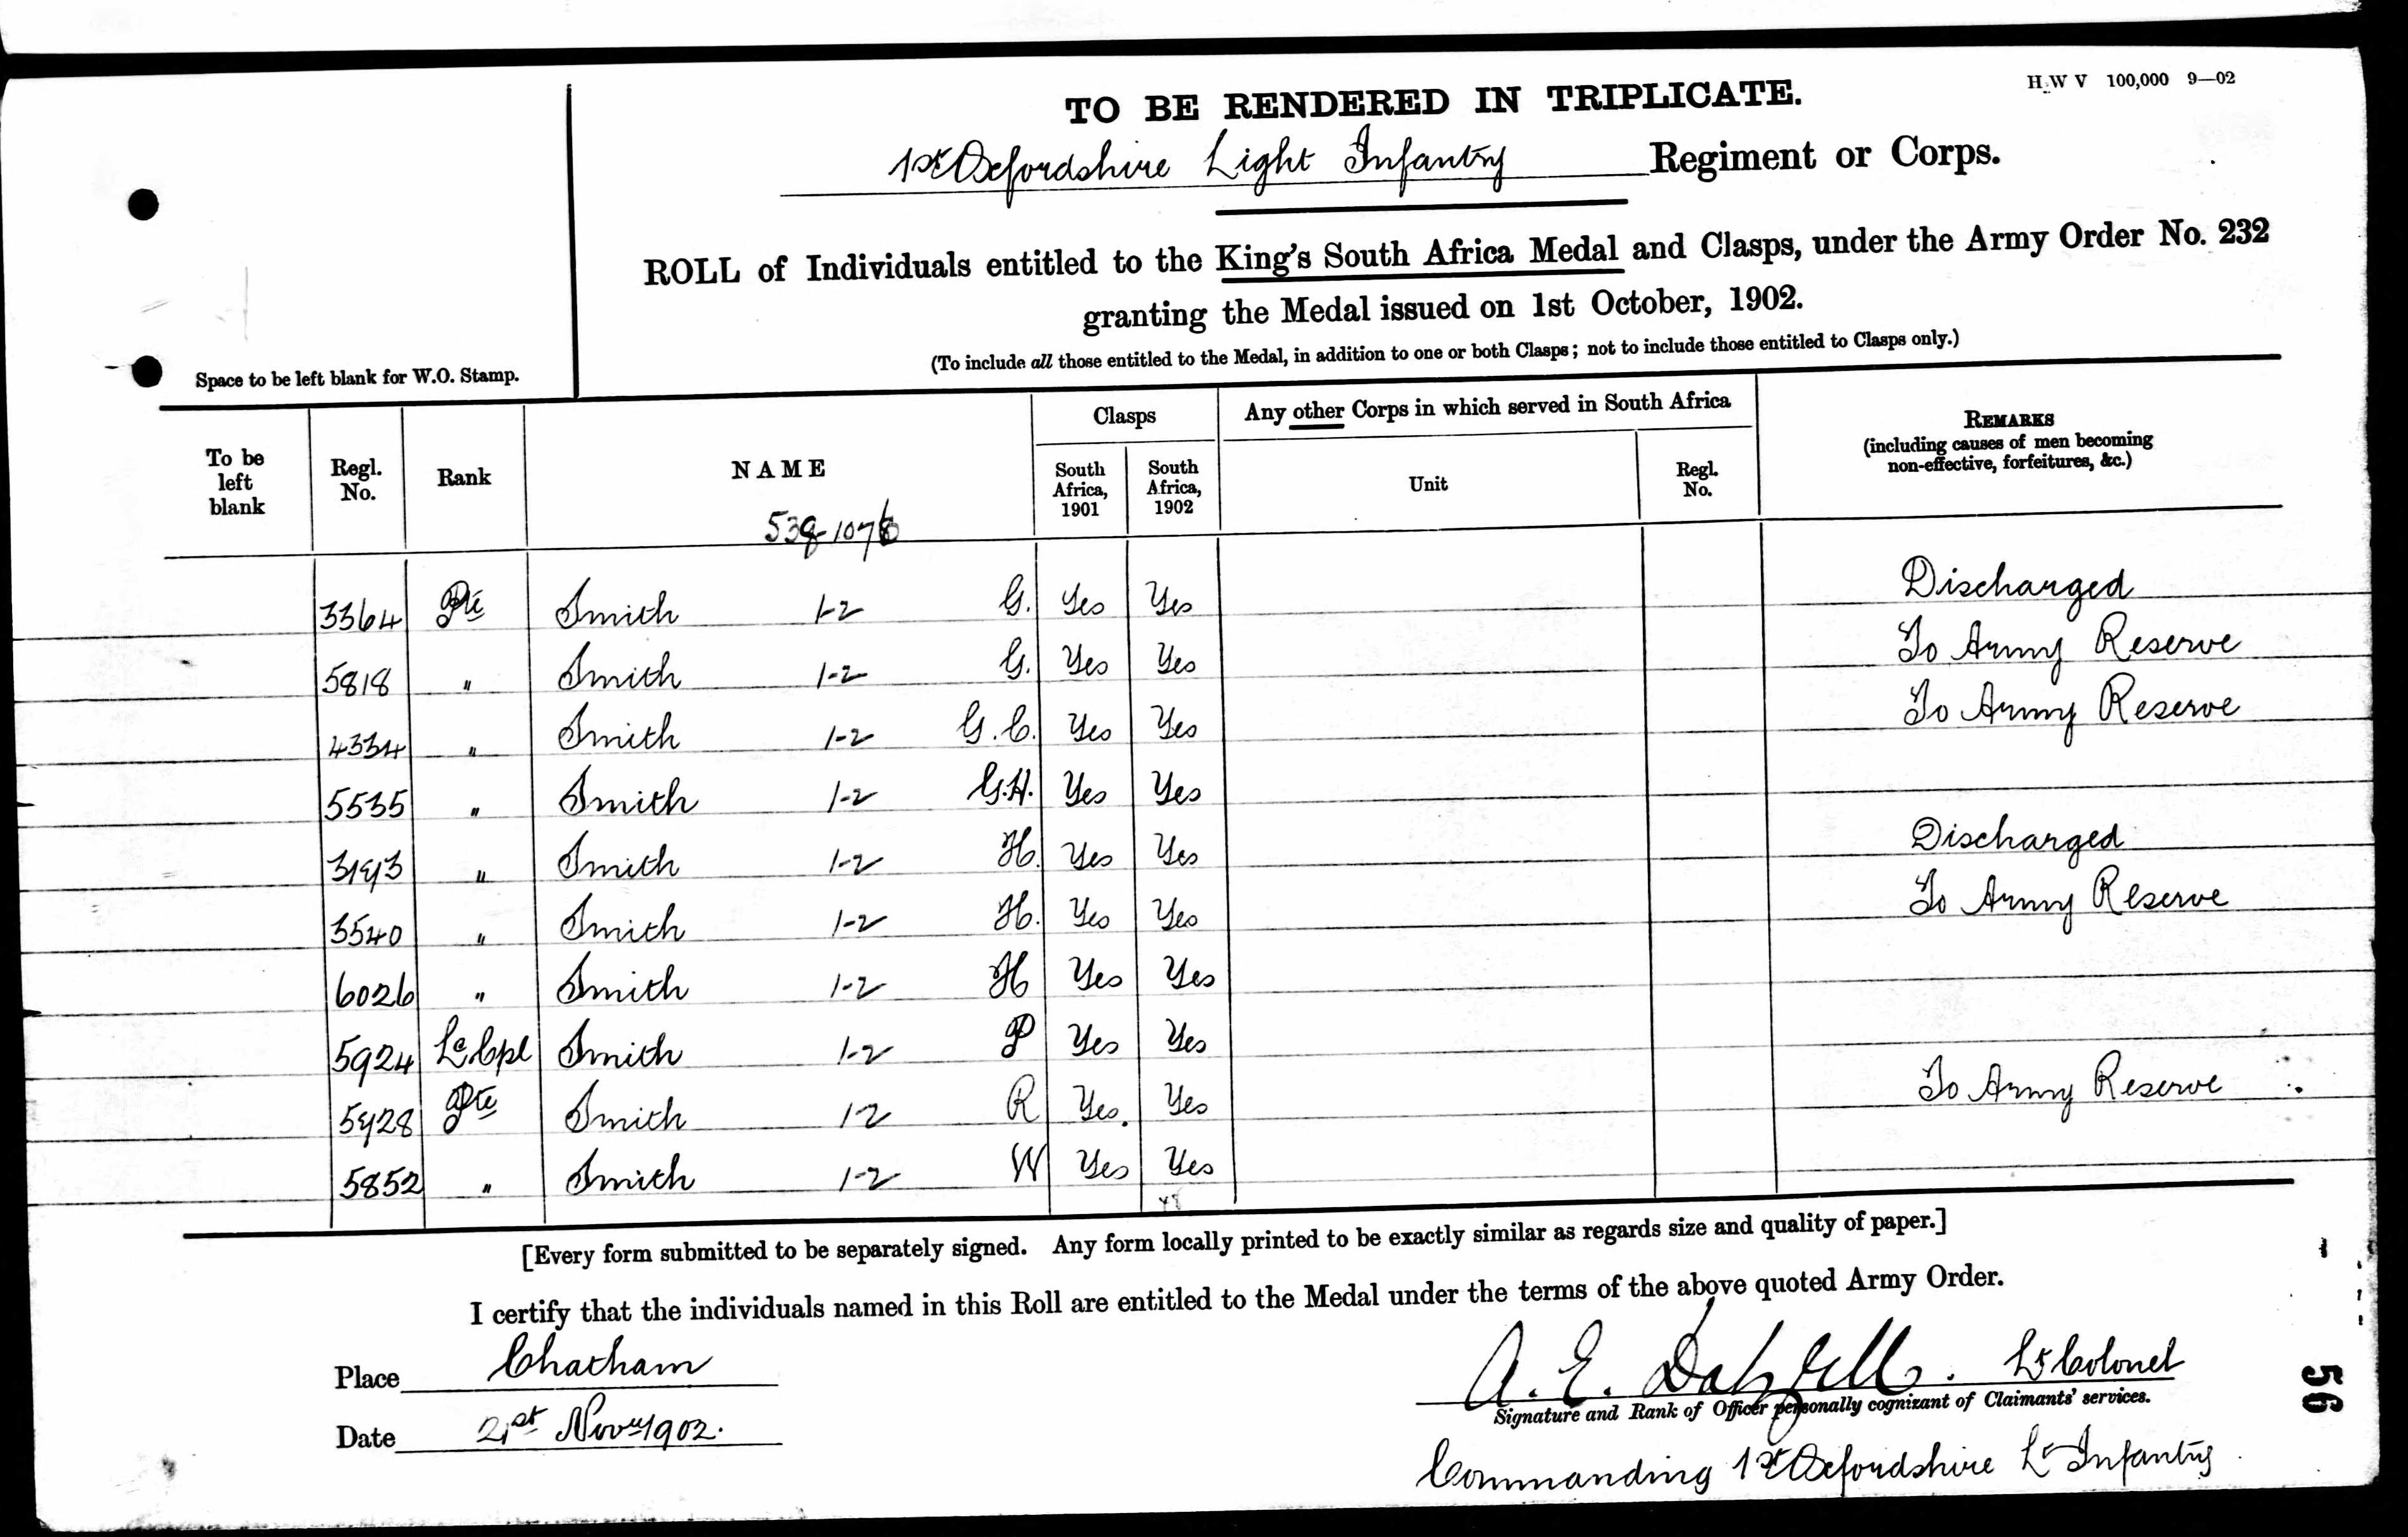 H.W V 100,000 9—02
TO BE RENDERED IN TRIPLICATE.
1st Oxfordshire Light Infantry Regiment or Corps.
ROLL of Individuals entitled to the King's South Africa Medal and Clasps, under the Army Order No. 232
granting the Medal issued on 1st October, 1902.
(To include all those entitled to the Medal, in addition to one or both Clasps; not to include those entitled to Clasps only.)
Space to be left blank for W.O. Stamp.
To be left blank Regl. No. Rank NAME Clasps South Africa, 1901 South Africa, 1902 Any other Corps in which served in South Africa Unit Regl. No. REMARKS (including causes of men becoming non-effective, forfeitures, &c.)
3364 Pte Smith 1-2 G. Yes Yes Discharged
5818 " Smith 1-2 G. Yes Yes To Army Reserve
4334 " Smith 1-2 G.C. Yes Yes To Army Reserve
5535 " Smith 1-2 G.H. Yes Yes
" Smith 1-2 H. Yes Yes Discharged
3540 " Smith 1-2 H. Yes Yes To Army Reserve
6026 " Smith 1-2 H Yes Yes
5924 Lc Cpl Smith 1-2 P Yes Yes
Pte Smith 1-2 R Yes. Yes To Army Reserve
5852 " Smith 1-2 W Yes Yes
[Every form submitted to be separately signed. Any form locally printed to be exactly similar as regards size and quality of paper.]
I certify that the individuals named in this Roll are entitled to the Medal under the terms of the above quoted Army Order.
Place Chatham
A. E. Dalzell. Lt Colonel
Signature and Rank of Officer personally cognizant of Claimants' services.
Date 21st Novr 1902.
Commanding 1st Oxfordshire Lt Infantry.
56